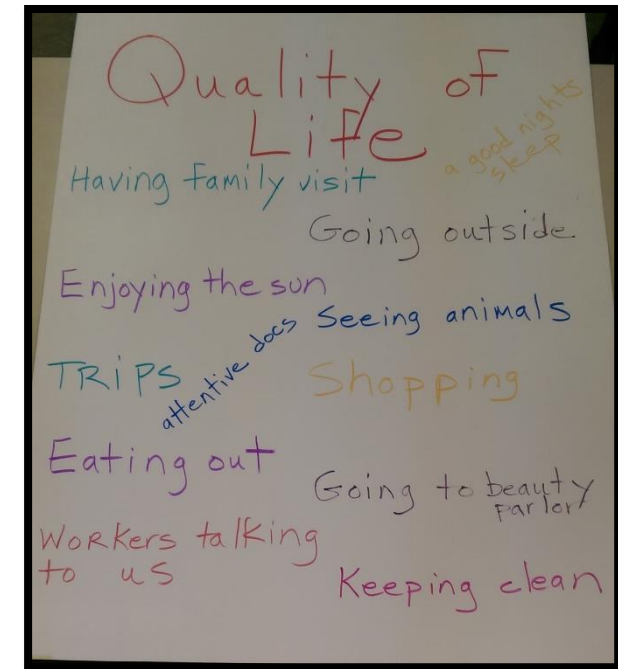 Quality of
Life
a good nights
sleep
Having family visit
Going outside.
Enjoying the sun
Seeing animals
attentive docs
TRiPS
Shopping
Eating out
Going to beauty
Parlor
Workers talking
to us
Keeping clean